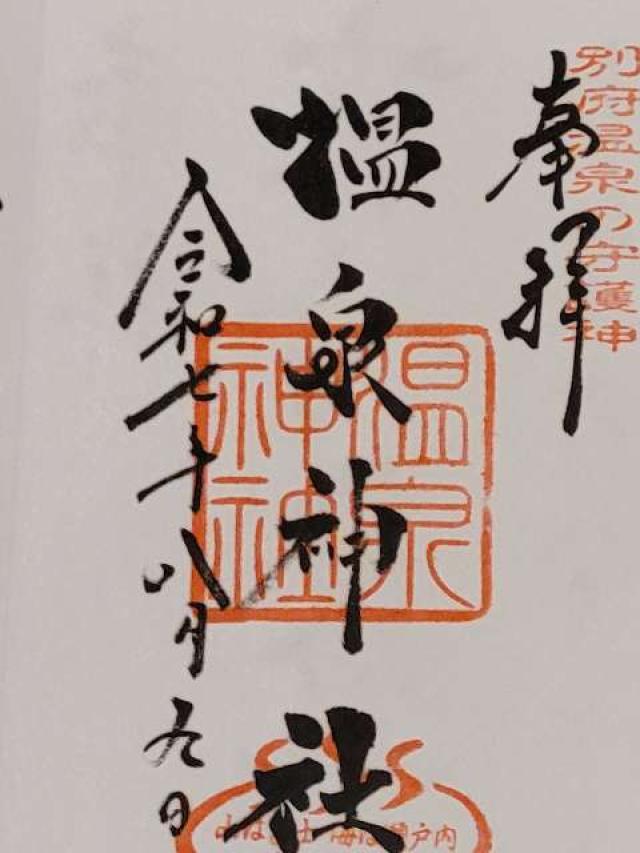 別府温泉の守護神
奉拝
温泉神社
令和七年八月九日
温泉
神社
山は富士 海は瀬戸内